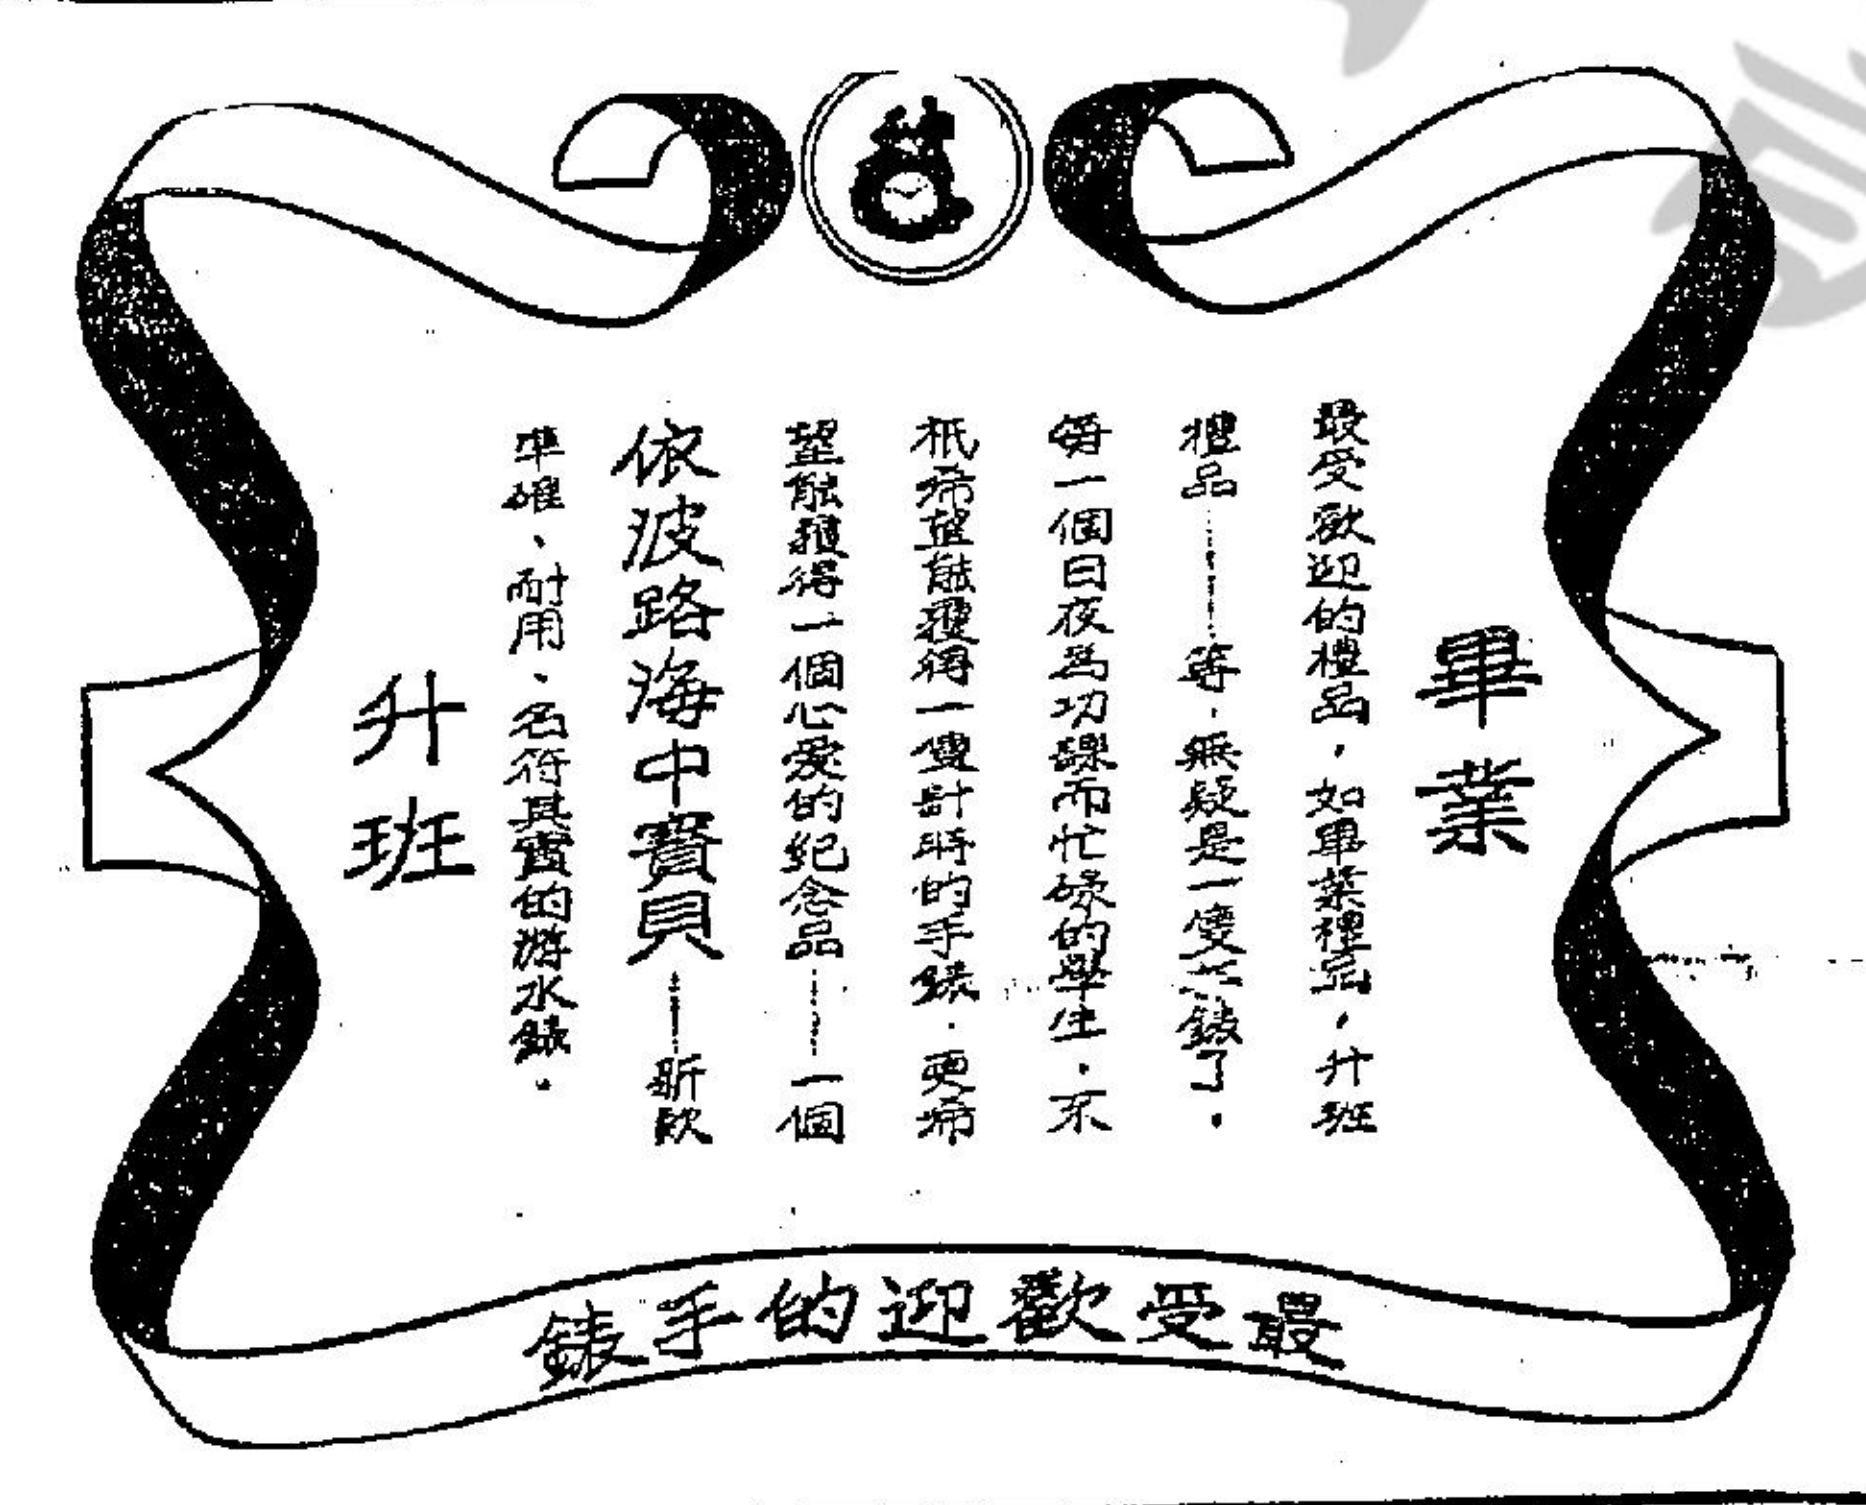 畢業
最受歡迎的禮品，如畢業禮品，升班
禮品………等，無疑是一隻錶了。
每一個日夜為功課而忙碌的學生，不
祇希望能獲得一隻計時的手錶，更希
望能獲得一個心愛的紀念品………一個
依波路海中寶貝………新款
準確、耐用、名符其實的游水錶。
升班
最受歡迎的手錶